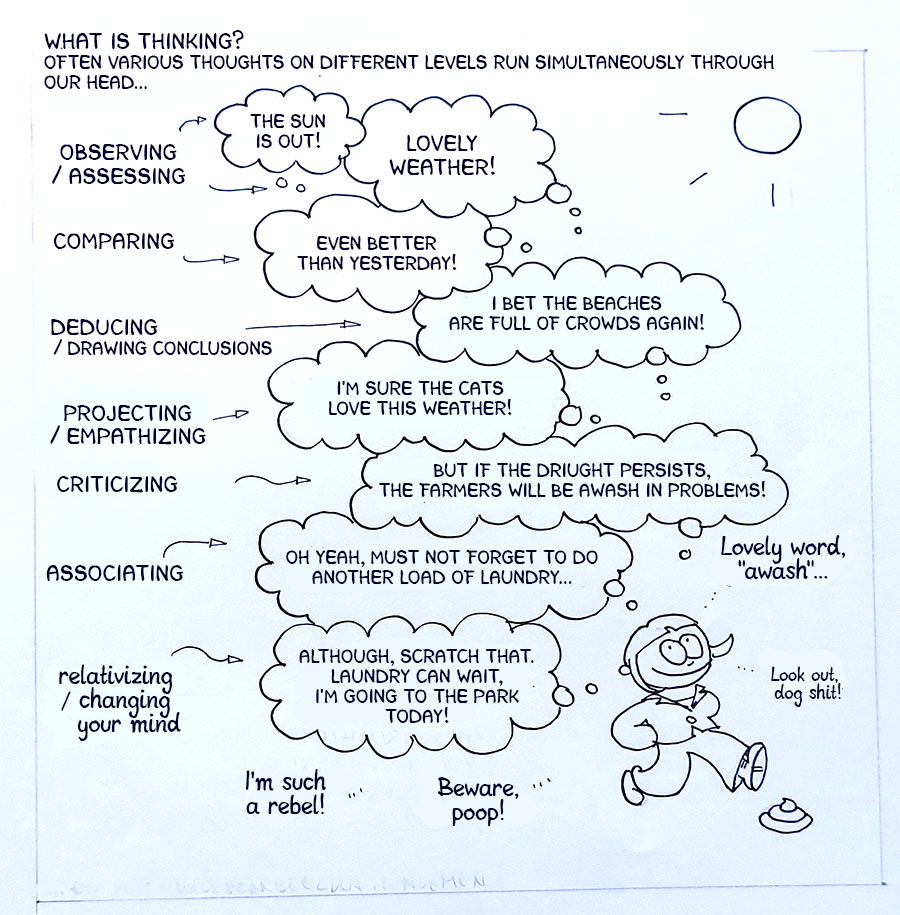 WHAT IS THINKING?
OFTEN VARIOUS THOUGHTS ON DIFFERENT LEVELS RUN SIMULTANEOUSLY THROUGH
OUR HEAD...
OBSERVING
/ ASSESSING
THE SUN
IS OUT!
LOVELY
WEATHER!
COMPARING
EVEN BETTER
THAN YESTERDAY!
DEDUCING
/ DRAWING CONCLUSIONS
I BET THE BEACHES
ARE FULL OF CROWDS AGAIN!
PROJECTING
/ EMPATHIZING
I'M SURE THE CATS
LOVE THIS WEATHER!
CRITICIZING
BUT IF THE DRIUGHT PERSISTS,
THE FARMERS WILL BE AWASH IN PROBLEMS!
Lovely word,
"awash"...
ASSOCIATING
OH YEAH, MUST NOT FORGET TO DO
ANOTHER LOAD OF LAUNDRY...
relativizing
/ changing
your mind
ALTHOUGH, SCRATCH THAT.
LAUNDRY CAN WAIT,
I'M GOING TO THE PARK
TODAY!
Look out,
dog shit!
I'm such
a rebel!
Beware,
poop!